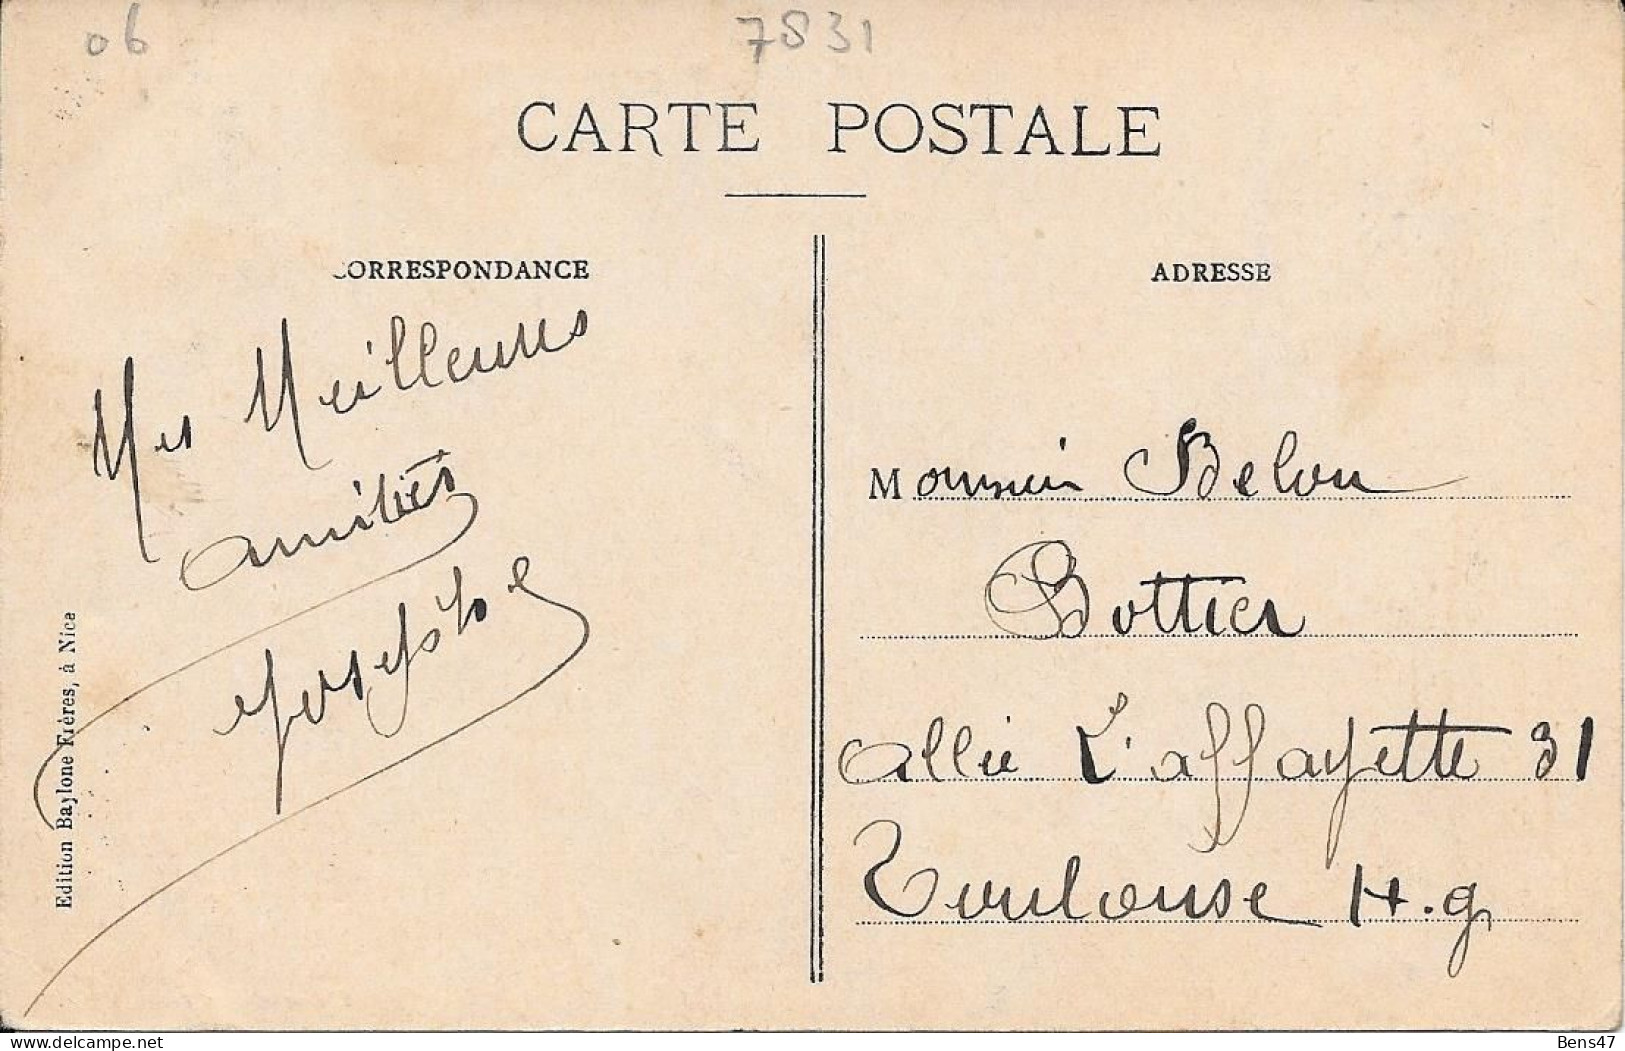 06
7831
CARTE POSTALE
CORRESPONDANCE
ADRESSE
Mes Meilleures
amitiés
Joseph
Edition Baylone Frères, à Nice
Monsieur Belou
Bottier
allée L'affayette 31
Toulouse H.g
delcampe.net
Bens47